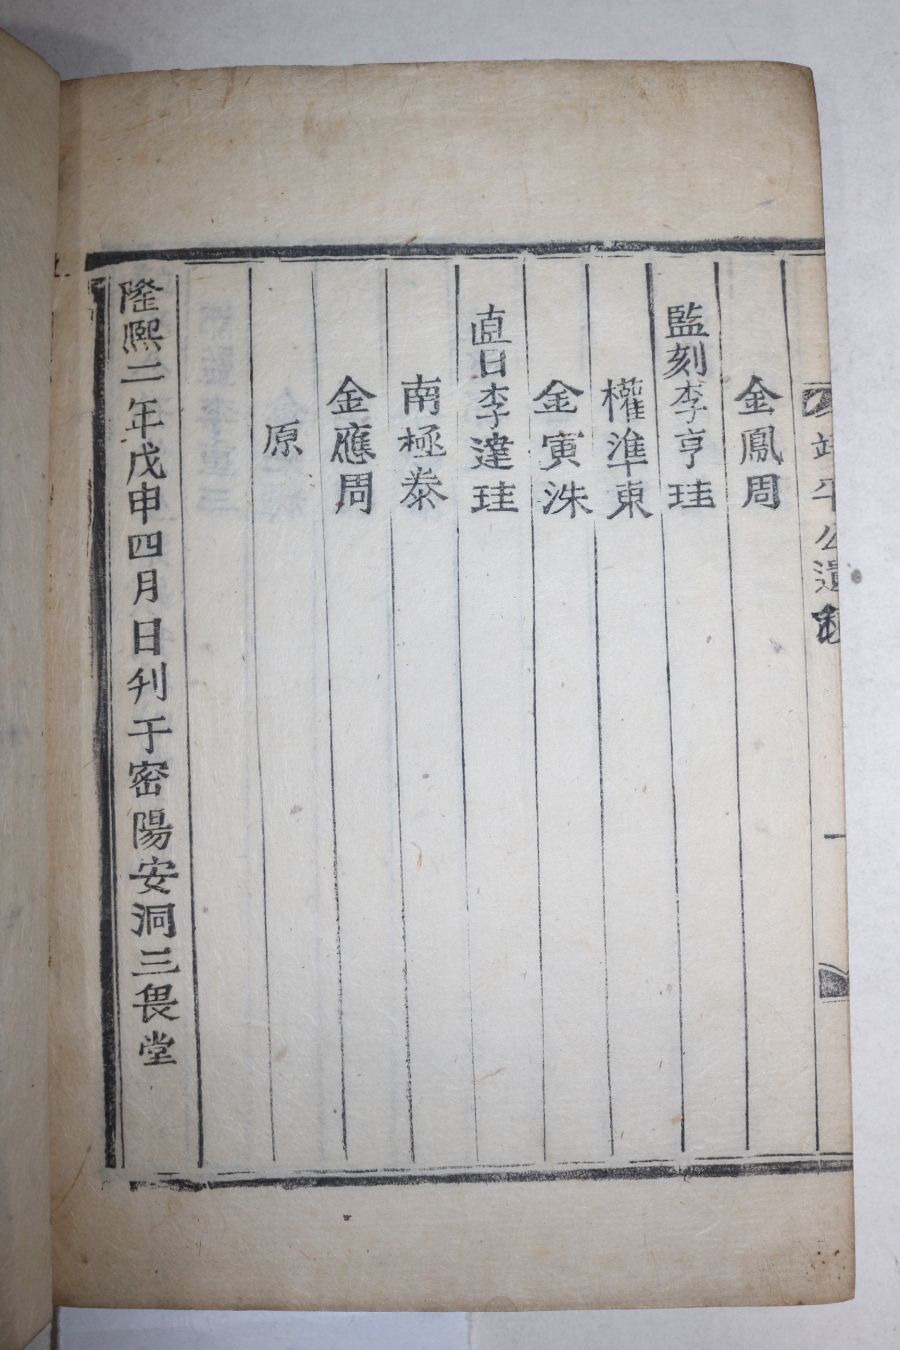 靖平公遺
金鳳周
監刻李亨珪
權準東
金寅洙
直日李達珪
南極泰
金應周
原
隆熙二年戊申四月日刋于密陽安洞三畏堂